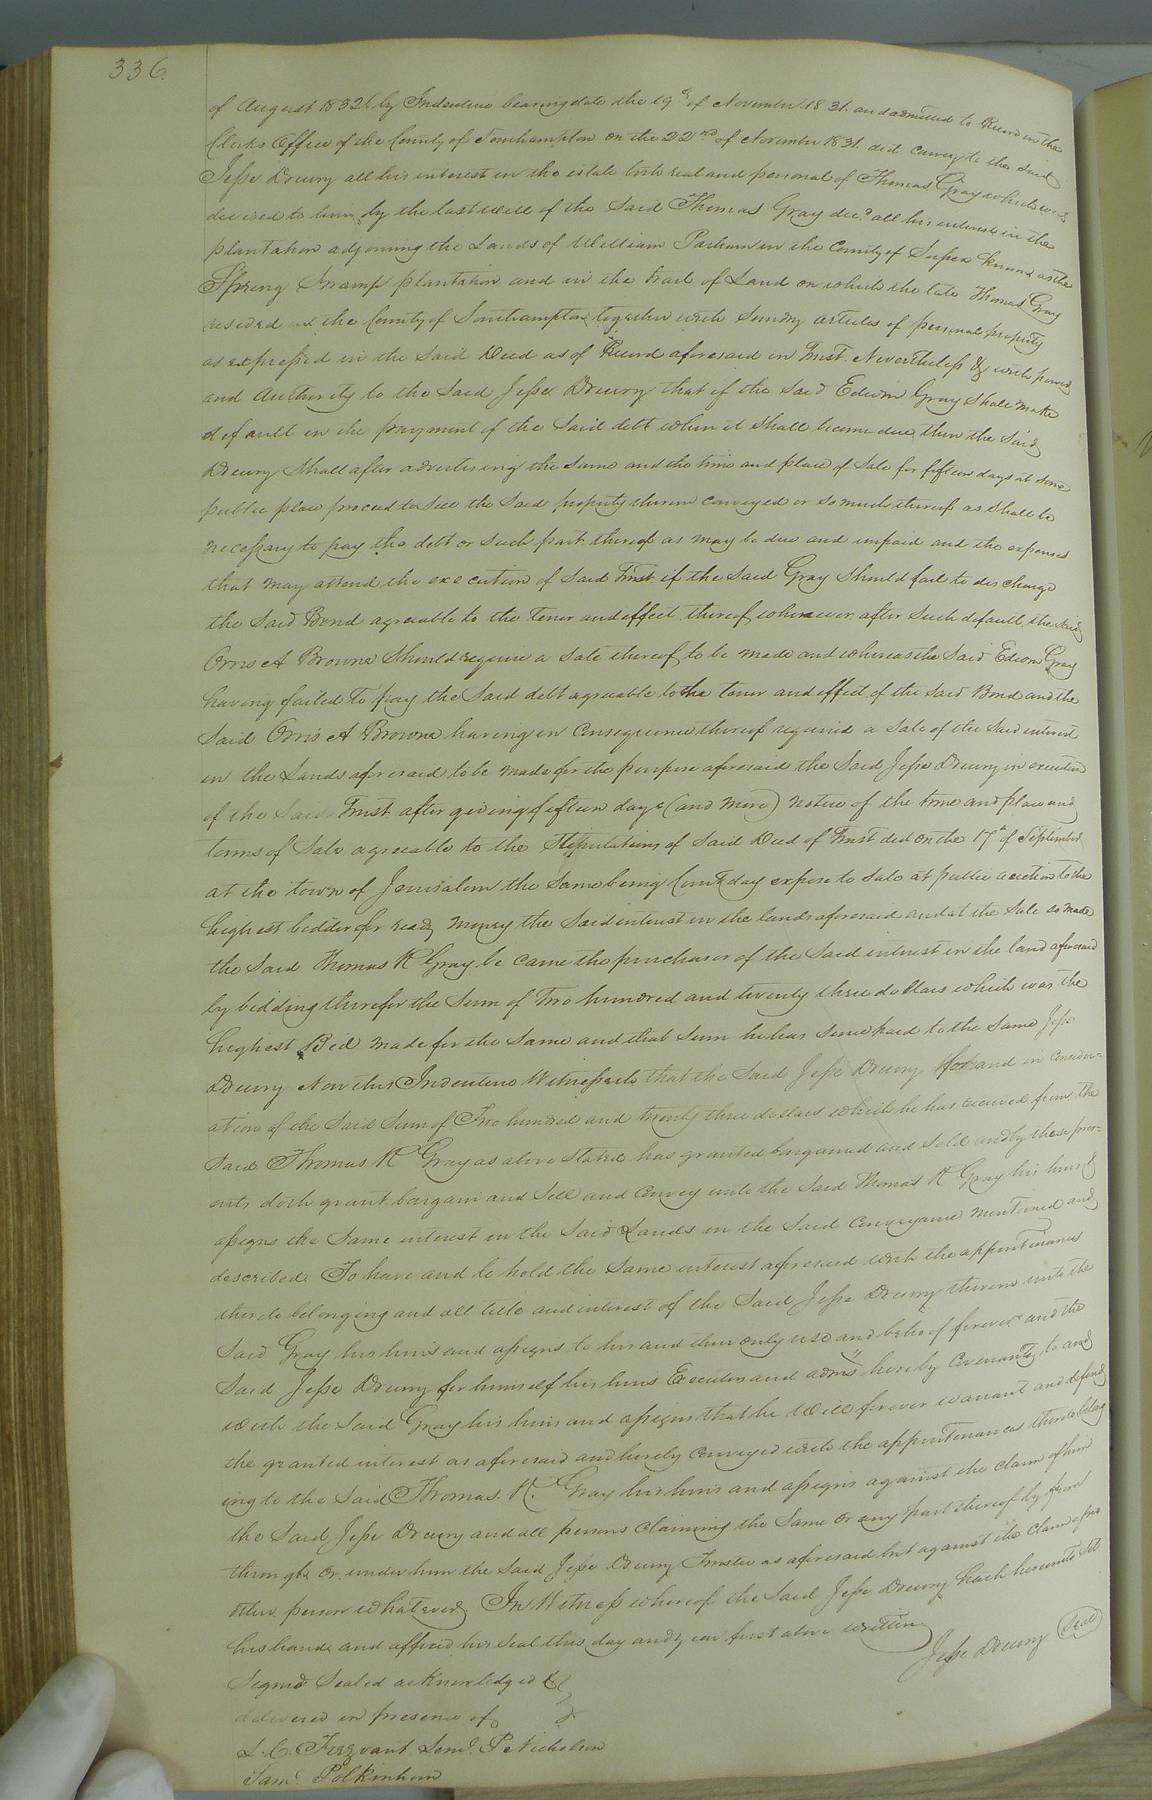 336.
of August 1832 by Indenture bearing date the 19th of November 1831. and admitted to Record in the
Clerks Office of the County of Southampton on the 22nd of November 1831. did convey to the said
Jesse Drewry all his interest in the estate both real and personal of Thomas Gray which was
devised to him by the last will of the said Thomas Gray decd all his interest in the
plantation adjoining the Lands of William Parham in the County of Sussex known as the
Spring Swamp plantation and in the tract of Land on which the late Thomas Gray
resided in the County of Southampton together with Sundry articles of personal property
as expressed in the said Deed as of Record aforesaid in Trust Nevertheless & with power
and Authority to the said Jesse Drewry that if the said Edwin Gray shall make
default in the payment of the said debt when it shall become due, then the said
Drewry shall after advertising the same and the time and place of sale for fifteen days at some
public place proceed to sell the said property therein conveyed or so much thereof as shall be
necessary to pay the debt or such part thereof as may be due and unpaid and the expenses
that may attend the execution of said Trust if the said Gray should fail to discharge
the said Bond agreeable to the tenor and effect thereof whenever after such default the said
Orris A Browne should require a sale thereof to be made and whereas the said Edwin Gray
having failed to pay the said debt agreeable to the tenor and effect of the said Bond and the
said Orris A Browne having in consequence thereof required a sale of the said interest
in the Lands aforesaid to be made for the purpose aforesaid the said Jesse Drewry in execution
of the said Trust after giving fifteen days (and more) notice of the time and place and
terms of sale agreeable to the Stipulations of said Deed of Trust did on the 17th of September
at the town of Jerusalem the same being Court day expose to sale at public auction to the
highest bidder for ready money the said interest in the lands aforesaid and at the sale so made
the said Thomas R Gray be came the purchaser of the said interest in the land aforesaid
by bidding therefor the sum of Two hundred and twenty three dollars which was the
highest Bid made for the same and that sum he has since paid to the same Jesse
Drewry Now this Indenture Witnesseth that the said Jesse Drewry for and in consider=
ation of the said sum of Two hundred and twenty three dollars which he has received from the
said Thomas R Gray as above stated has granted bargained and sold and by these pres=
ents doth grant bargain and sell and convey unto the said Thomas R Gray his heirs &
assigns the same interest in the said Lands in the said conveyance mentioned and
described To have and to hold the same interest aforesaid with the appertinances
thereto belonging and all title and interest of the said Jesse Drewry therein unto the
said Gray his heirs and assigns to his and their only use and behoof forever and the
said Jesse Drewry for himself his heirs Executors and admrs hereby covenants to and
with the said Gray his heirs and assigns that he will forever warrant and defend
the granted interest as aforesaid and hereby conveyed with the appertinances thereto belong
ing to the said Thomas R. Gray his heirs and assigns against the claim of him
the said Jesse Drewry and all persons claiming the same or any part thereof by from
through or under him the said Jesse Drewry Trustee as aforesaid but against the claim of no
other person whatever. In Witness whereof the said Jesse Drewry hath hereunto set
his hand and affixed his seal this day and year first above written
Jesse Drewry (Seal)
Signed Sealed acknowledged &
delivered in presence of
L. C. Trezvant Saml. P Nicholson
Saml. Polkinhorn